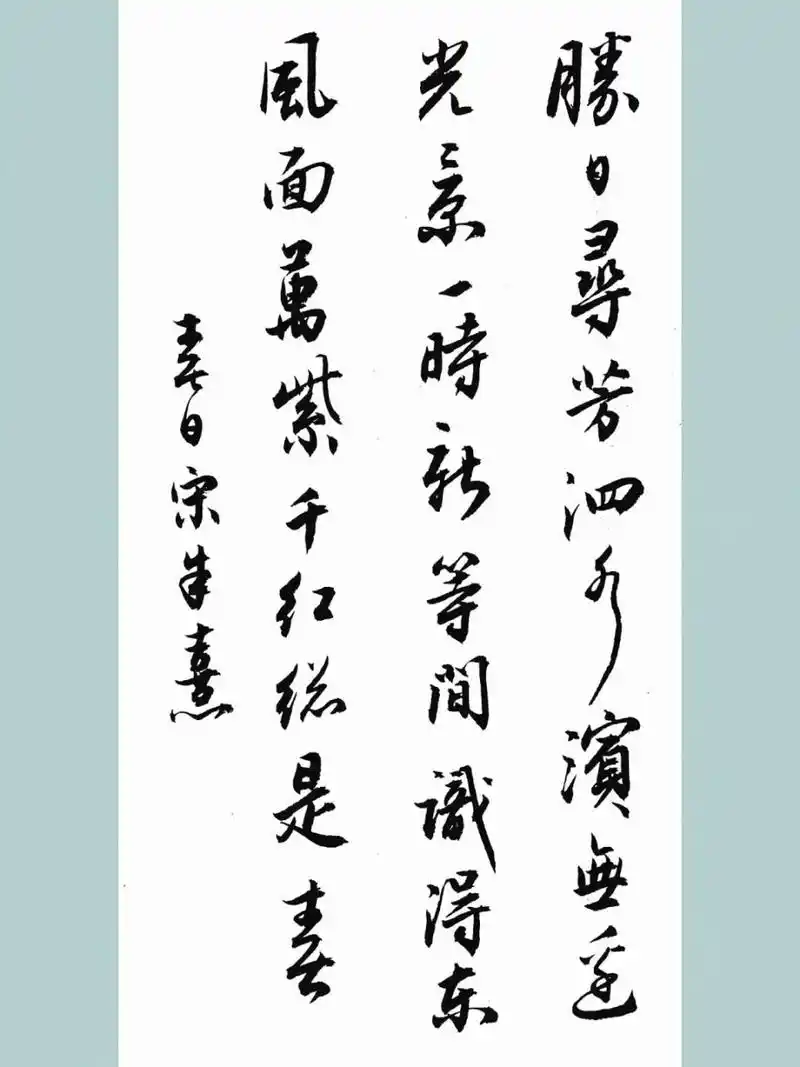 勝日尋芳泗水濱無邊
光景一時新等閒識得东
風面萬紫千红總是春
春日宋朱熹